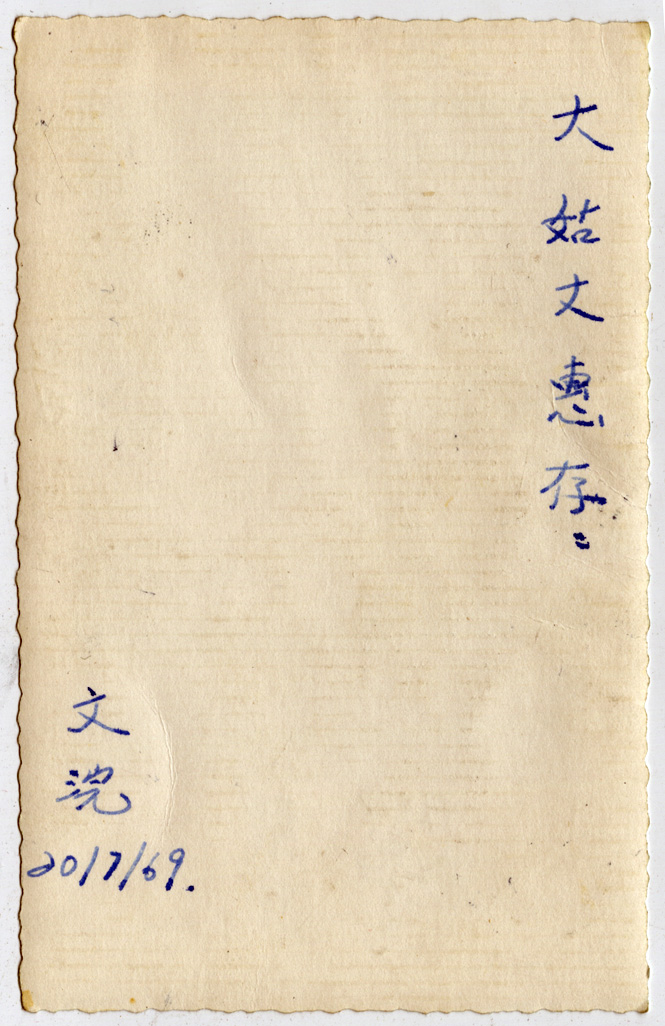 大姑丈惠存：
文浣
20/7/69.